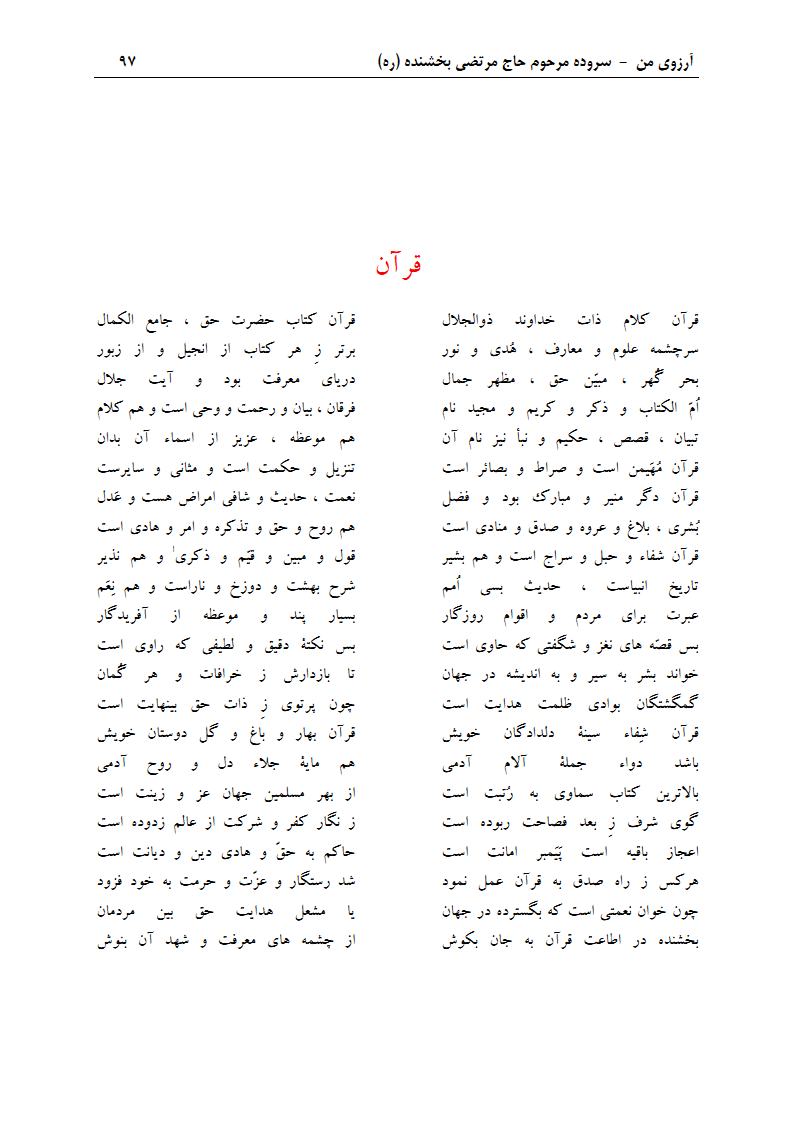 آرزوی من - سروده مرحوم حاج مرتضی بخشنده (ره) ۹۷
قرآن
قرآن کلام ذات خداوند ذوالجلال قرآن کتاب حضرت حق ، جامع الکمال
سرچشمه علوم و معارف ، هُدی و نور برتر زِ هر کتاب از انجیل و از زبور
بحر گُهر ، مبیّن حق ، مظهر جمال دریای معرفت بود و آیت جلال
اُمّ الکتاب و ذکر و کریم و مجید نام فرقان ، بیان و رحمت و وحی است و هم کلام
تبیان ، قصص ، حکیم و نبأ نیز نام آن هم موعظه ، عزیز از اسماء آن بدان
قرآن مُهَیمن است و صراط و بصائر است تنزیل و حکمت است و مثانی و سایرست
قرآن دگر منیر و مبارک بود و فضل نعمت ، حدیث و شافی امراض هست و عَدل
بُشری ، بلاغ و عروه و صدق و منادی است هم روح و حق و تذکره و امر و هادی است
قرآن شفاء و حبل و سراج است و هم بشیر قول و مبین و قیّم و ذکریٰ و هم نذیر
تاریخ انبیاست ، حدیث بسی اُمم شرح بهشت و دوزخ و ناراست و هم نِعَم
عبرت برای مردم و اقوام روزگار بسیار پند و موعظه از آفریدگار
بس قصّه های نغز و شگفتی که حاوی است بس نکتۀ دقیق و لطیفی که راوی است
خواند بشر به سیر و به اندیشه در جهان تا بازدارش ز خرافات و هر گُمان
گمگشتگان بوادی ظلمت هدایت است چون پرتوی زِ ذات حق بینهایت است
قرآن شِفاء سینۀ دلدادگان خویش قرآن بهار و باغ و گل دوستان خویش
باشد دواء جملۀ آلام آدمی هم مایۀ جلاء دل و روح آدمی
بالاترین کتاب سماوی به رُتبت است از بهر مسلمین جهان عز و زینت است
گوی شرف زِ بعد فصاحت ربوده است ز نگار کفر و شرکت از عالم زدوده است
اعجاز باقیه است پَیَمبر امانت است حاکم به حقّ و هادی دین و دیانت است
هرکس ز راه صدق به قرآن عمل نمود شد رستگار و عزّت و حرمت به خود فزود
چون خوان نعمتی است که بگسترده در جهان یا مشعل هدایت حق بین مردمان
بخشنده در اطاعت قرآن به جان بکوش از چشمه های معرفت و شهد آن بنوش